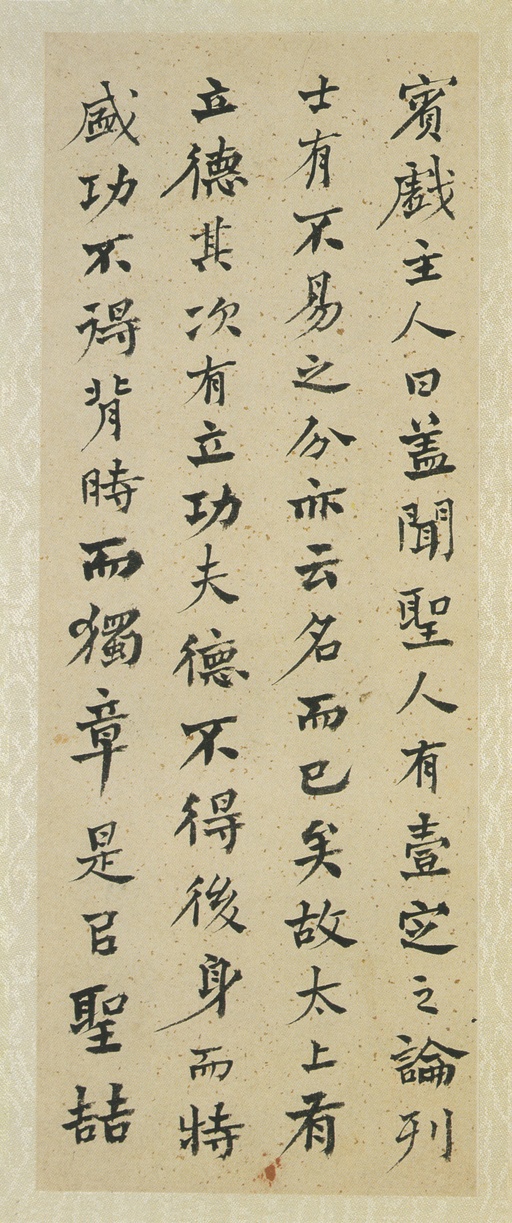 賓戲主人曰蓋聞聖人有壹定之論列
士有不易之分亦云名而已矣故太上有
立德其次有立功夫德不得後身而特
盛功不得背時而獨章是㠯聖喆